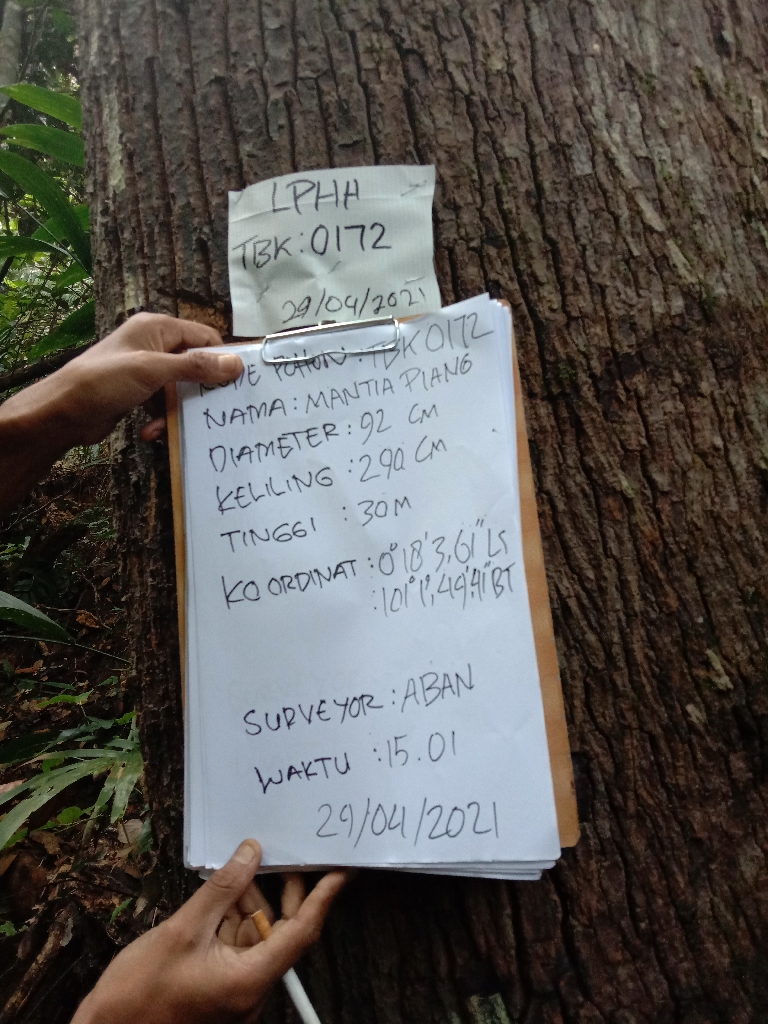 LPHH
TBK:0172
29/04/2021
KODE POHON : TBK 0172
NAMA : MANTIA PIANG
DIAMETER : 92 CM
KELILING : 290 CM
TINGGI : 30 M
KOORDINAT : 0°18'3,61" LS
: 101°1',49,41" BT
SURVEYOR : ABAN
WAKTU : 15.01
29/04/2021